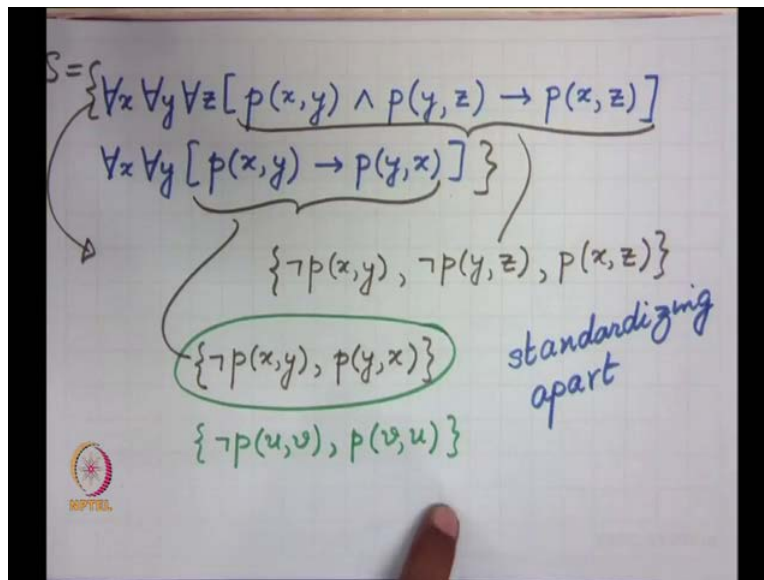 S = {∀x ∀y ∀z [ p(x,y) ∧ p(y,z) → p(x,z) ]
∀x ∀y [ p(x,y) → p(y,x) ] }
{¬p(x,y), ¬p(y,z), p(x,z)}
standardizing
apart
{¬p(x,y), p(y,x)}
{¬p(u,v), p(v,u)}
NPTEL